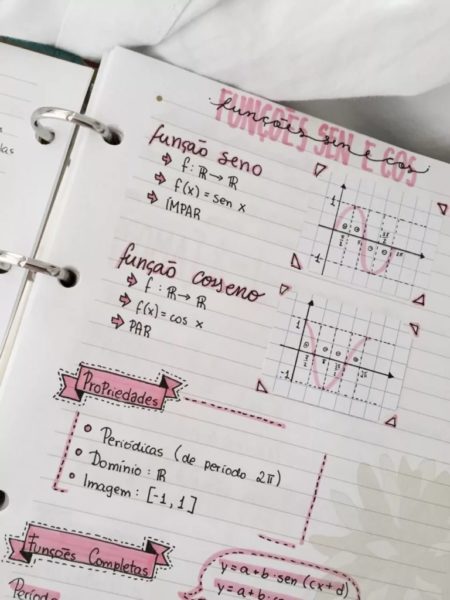 das
FUNÇÕES SEN E COS
funções sin e cos
função seno
⇨ f: ℝ → ℝ
⇨ f(x) = sen x
⇨ ÍMPAR
função cosseno
⇨ f: ℝ → ℝ
⇨ f(x) = cos x
⇨ PAR
Propriedades
• Periódicas (de período 2π)
• Domínio: ℝ
• Imagem: [-1, 1]
Funções Completas
y = a + b · sen (cx + d)
Período